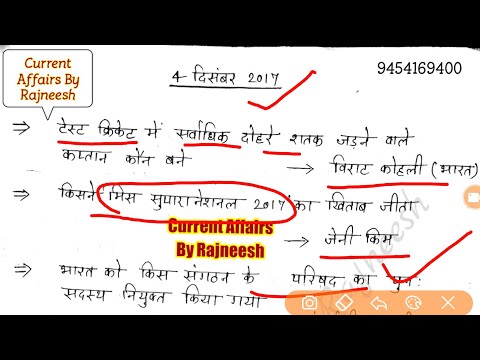 Current
Affairs By
Rajneesh
4 दिसंबर 2017
9454169400
⇒ टेस्ट क्रिकेट में सर्वाधिक दोहरे शतक जड़ने वाले
कप्तान कौन बने
→ विराट कोहली (भारत)
⇒ किसने मिस सुपरानेशनल 2017 का खिताब जीता
Current Affairs
By Rajneesh
→ जेनी किम
⇒ भारत को किस संगठन के परिषद का पुनः
सदस्य नियुक्त किया गया
Rajneesh